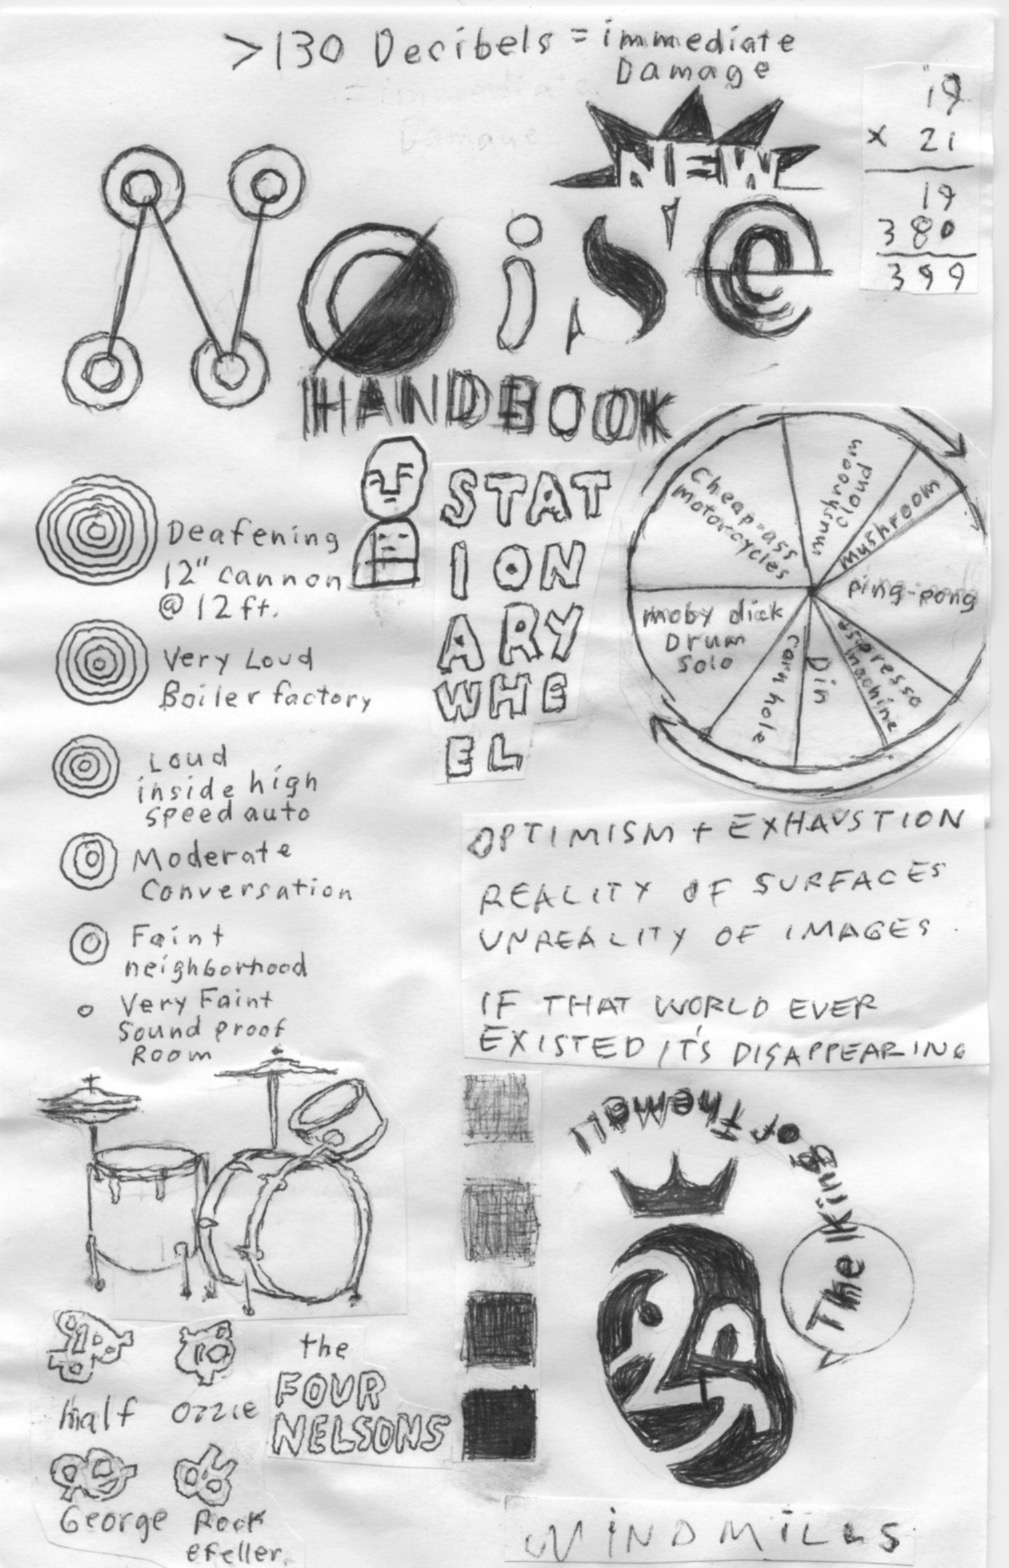 >130 Decibels = immediate
Damage
= immediate
Damage
19
x 21
19
380
399
NEW
Noise
HANDBOOK
Deafening
12" cannon
@ 12 ft.
Very Loud
Boiler factory
Loud
inside high
speed auto
Moderate
Conversation
Faint
neighborhood
Very Faint
Sound proof
Room
STAT
ION
ARY
WHE
EL
Cheap-ass
motorcycles
mushroom
cloud
mushroom
ping-pong
espresso
machine
Din
corn hole
moby dick
Drum
Solo
OPTIMISM + EXHAUSTION
REALITY OF SURFACES
UNREALITY OF IMAGES.
IF THAT WORLD EVER
EXISTED IT'S DISAPPEARING
The King or Themall
the
FOUR
NELSONS
Half
Ozzie
George
Rock
efeller.
WINDMILLS